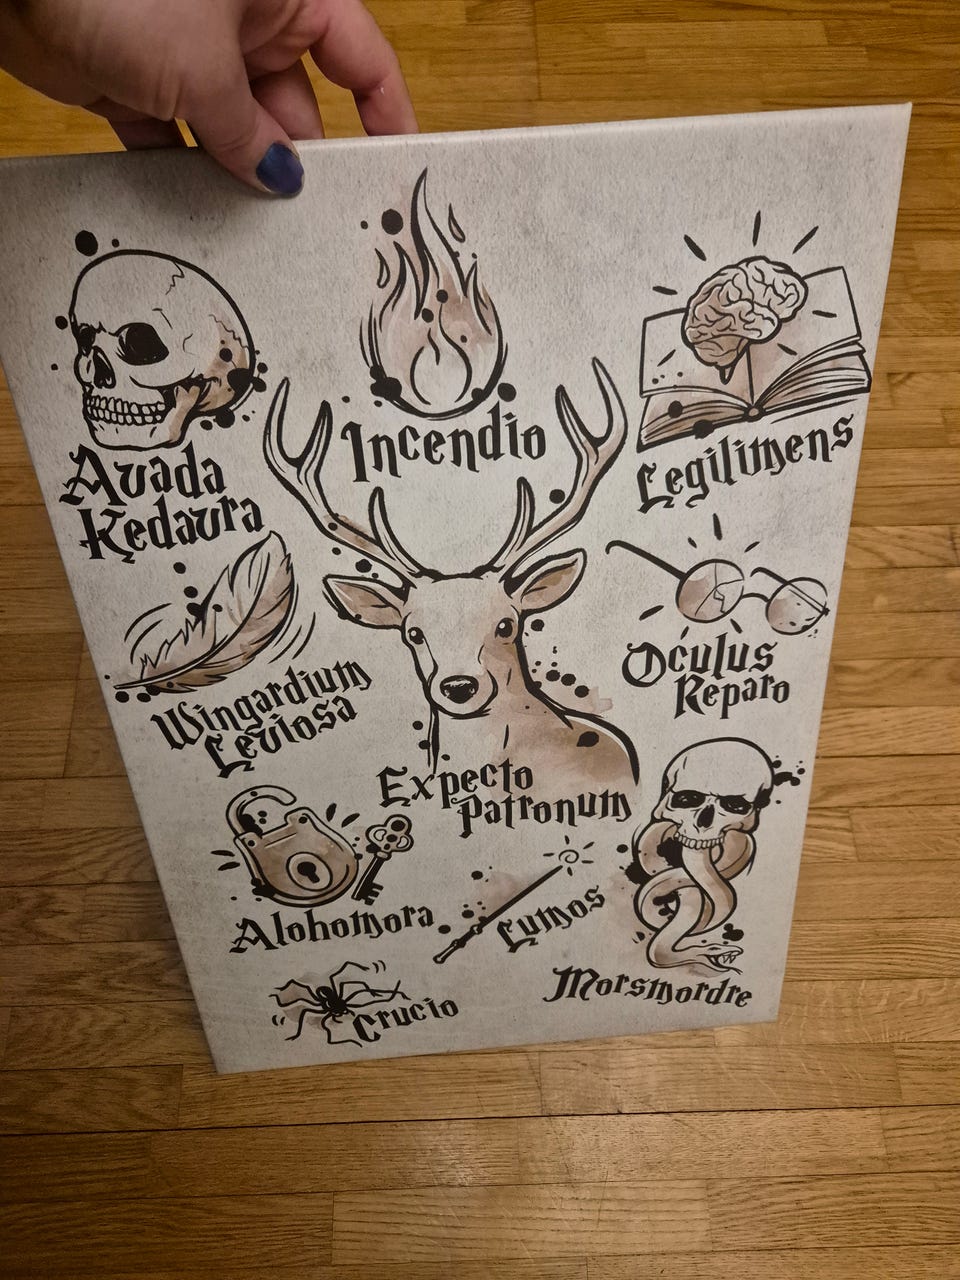 Incendio
Avada
Kedavra
Legilimens
Wingardium
Leviosa
Oculus
Reparo
Expecto
Patronum
Alohomora
Lumos
Morsmordre
Crucio